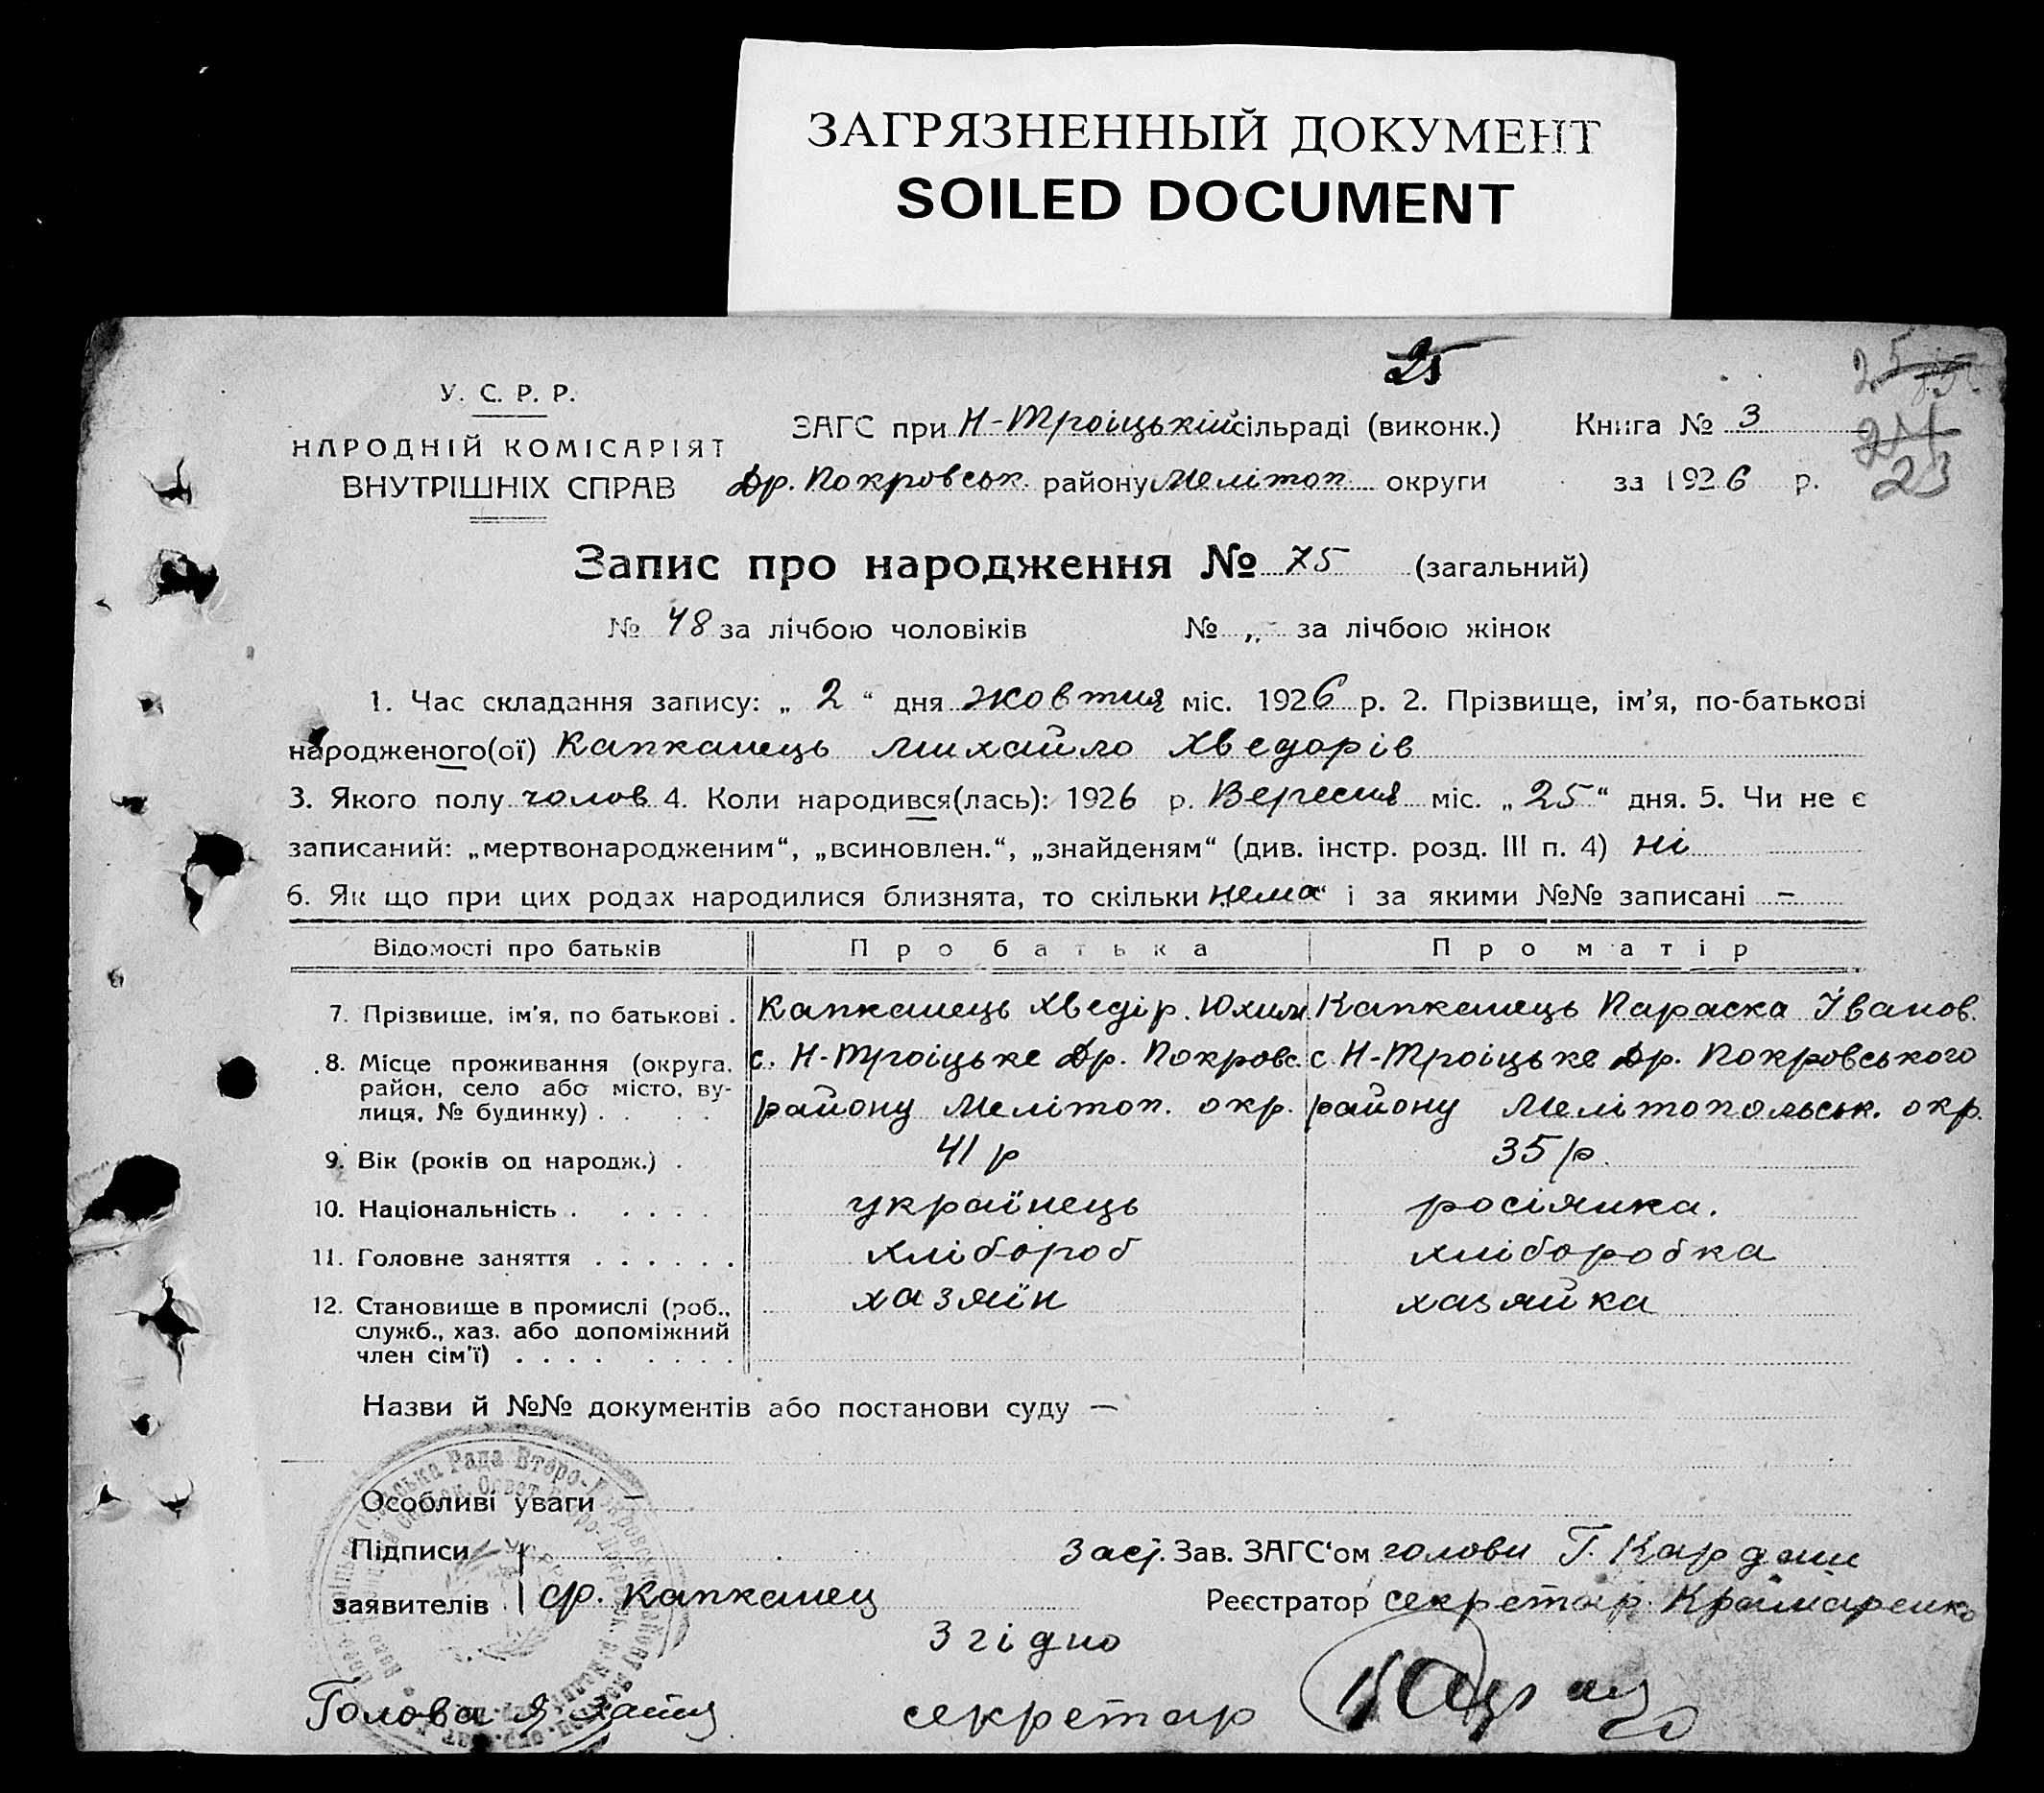 ЗАГРЯЗНЕННЫЙ ДОКУМЕНТ
SOILED DOCUMENT
25
25
24
23
У. С. Р. Р.
НАРОДНІЙ КОМІСАРІЯТ
ВНУТРІШНІХ СПРАВ
ЗАГС при Н-Троіцькій сільраді (виконк.) Книга № 3
Др. Покровськ. району Мелітоп округи за 1926 р.
Запис про народження № 75 (загальний)
№ 48 за лічбою чоловіків № „ за лічбою жінок
1. Час складання запису: „ 2 “ дня жовтня міс. 1926 р. 2. Прізвище, ім’я, по-батькові
народженого(ої) Капканець Михайло Хведорів
3. Якого полу чолов 4. Коли народився(лась): 1926 р. Вересня міс. „ 25 “ дня. 5. Чи не є
записаний: „мертвонародженим“, „всиновлен.“, „знайденям“ (див. інстр. розд. III п. 4) ні
6. Як що при цих родах народилися близнята, то скільки нема і за якими №№ записані –
Відомості про батьків Про батька Про матір
7. Прізвище, ім’я, по батькові . Капканець Хведір. Юхим Капканець Параска Іванов.
8. Місце проживання (округа, с. Н-Троіцьке Др. Покровс. с Н-Троіцьке Др. Покровського
район, село або місто, ву-
лиця, № будинку) . . . . району Мелітоп. окр. району Мелітопольськ. окр.
9. Вік (років од народж.) . 41 р 35 р.
10. Національність . . . . . українець росіянка.
11. Головне заняття . . . . . . хлібороб хліборобка
12. Становище в промислі (роб., хазяїн хазяйка
служб., хаз. або допоміжний
член сім’ї) . . . . . . . .
Назви й №№ документів або постанови суду —
Особливі уваги –
Підписи Заст. Зав. ЗАГС‘ом голови Г. Кардаш
заявителів Ф. Капканец Реєстратор секретар Крамаренко
Згідно
Голова секретар